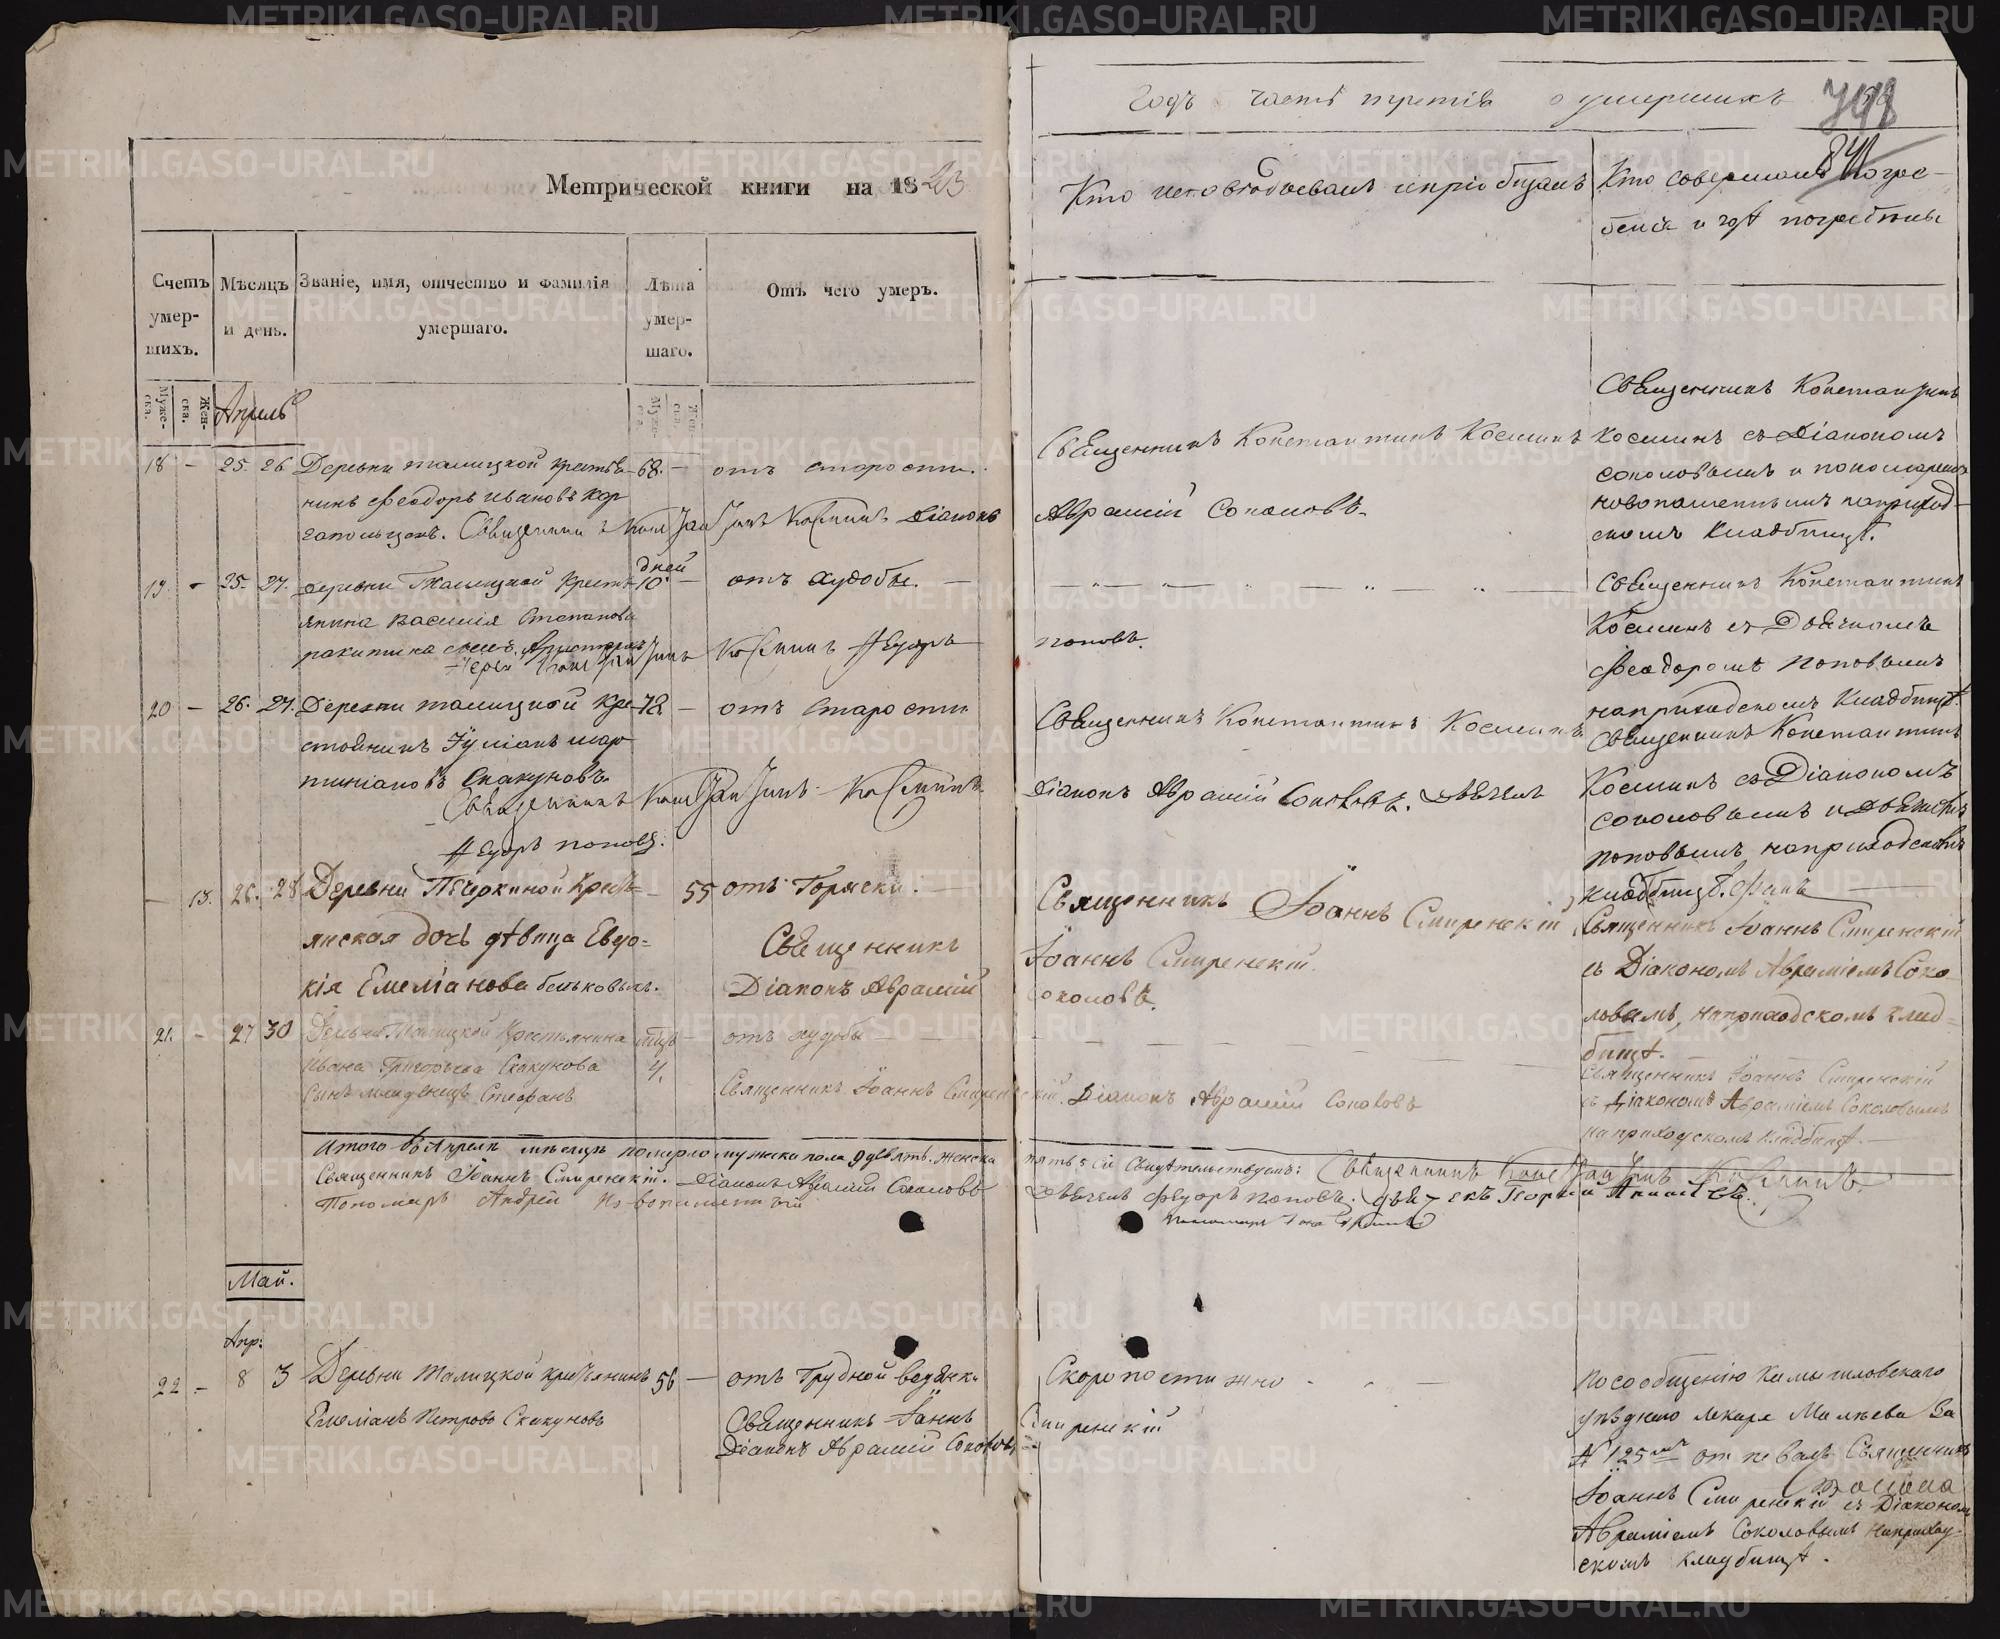 Метрической книги на 1843
Счетъ умер-шихъ.
Мѣсяцъ и день.
Званіе, имя, отчество и фамилія умершаго.
Лѣта умер-шаго.
Отъ чего умеръ.
Муже-ска.
Жен-ска.
Муже-ска.
Жен-ска.
Апрель
18 - 25. 26 Деревни талицкой крестья- 68. - отъ старости.
нинъ Феодоръ Ивановъ Кар-
гапольцовъ. Священникъ Константинъ Косминъ Діаконъ
19 - 25. 27. деревни Талицкой Кресть- дней 10. - отъ худобы. -
янина Василія Степанова
ракитина сынъ
Іерей Константинъ Косминъ Ѳедоръ
20 - 26. 27. Деревни талицкой Кре- 72 - отъ Старости
стьянинъ Іуліанъ мар-
тиніановъ Скакуновъ.
Священникъ Константинъ Косминъ
Ѳедоръ поповъ.
- 13. 26. 28 Деревни Печеркиной Кресть- - 55 отъ Горячки. -
янская дочь дѣвица Евдо-
кія Емеліанова
Священникъ
Діаконъ Аврамій
21. - 27 30 Деревни Талицкой Крестьянина мцъ 4. - отъ худобы - -
Ивана Григорьева Скакунова
Сынъ младенецъ Стефанъ
Священникъ Іоаннъ Смирен
Итого въ Апрелѣ мѣсяцѣ померло мужеска пола 9 девять. женска
Священникъ Іоаннъ Смиренскій. Діаконъ Аврамій Соколовъ
Пономарь Андрей Новопаметный
Май.
Апр:
22 - 8 3 Деревни Талицкой крестьянинъ 56 - отъ Трудной водянки
Емеліанъ Петровъ Скакуновъ
Священникъ Іоаннъ
Діаконъ Аврамій Соколовъ
Годъ часть третія о умершихъ
841
Кто исповѣдывалъ и пріобщалъ
Кто совершалъ Погре-
бенія и гдѣ погребены
Священникъ Константинъ Косминъ
Аврамій Соколовъ.
Священникъ Константинъ
Косминъ съ Діакономъ
соколовымъ и пономаремъ
новопаметнымъ на приход-
скомъ Кладбищѣ.
поповъ.
Священникъ Константинъ
Косминъ съ Дьячкомъ
Феодоромъ поповымъ
на приходскомъ Кладбищѣ.
Священникъ Константинъ Косминъ
Діаконъ Аврамій Соколовъ. дьячекъ
Священникъ Константинъ
Косминъ съ Діакономъ
соколовымъ и дьячкомъ
поповымъ на приходскомъ
кладбищѣ.
Священникъ Іоаннъ Смиренскій
Іоаннъ Смиренскій.
соколовъ.
Священникъ Іоаннъ Смиренскій
съ Діакономъ Аврамiемъ Соко-
ловымъ, на приходскомъ клад-
бищѣ.
скій. Діаконъ Аврамій Соколовъ
Священникъ Іоаннъ Смиренскій
съ Діакономъ Аврамiемъ Соколовымъ
на приходскомъ кладбищѣ. -
пять 5 Въ сём свидѣтельствуемъ: Священникъ Константинъ Косминъ
Дьячекъ Федоръ поповъ. дьячекъ
Скоропостижно
Смиренскій
По сообщенію Камышловскаго
уѣзднаго лекаря Малѣева За
№ 125мъ отпевалъ Священникъ
Іоаннъ Смиренскій съ Діакономъ
Аврамiемъ Соколовымъ на приход-
скомъ кладбищѣ.
METRIKI.GASO-URAL.RU